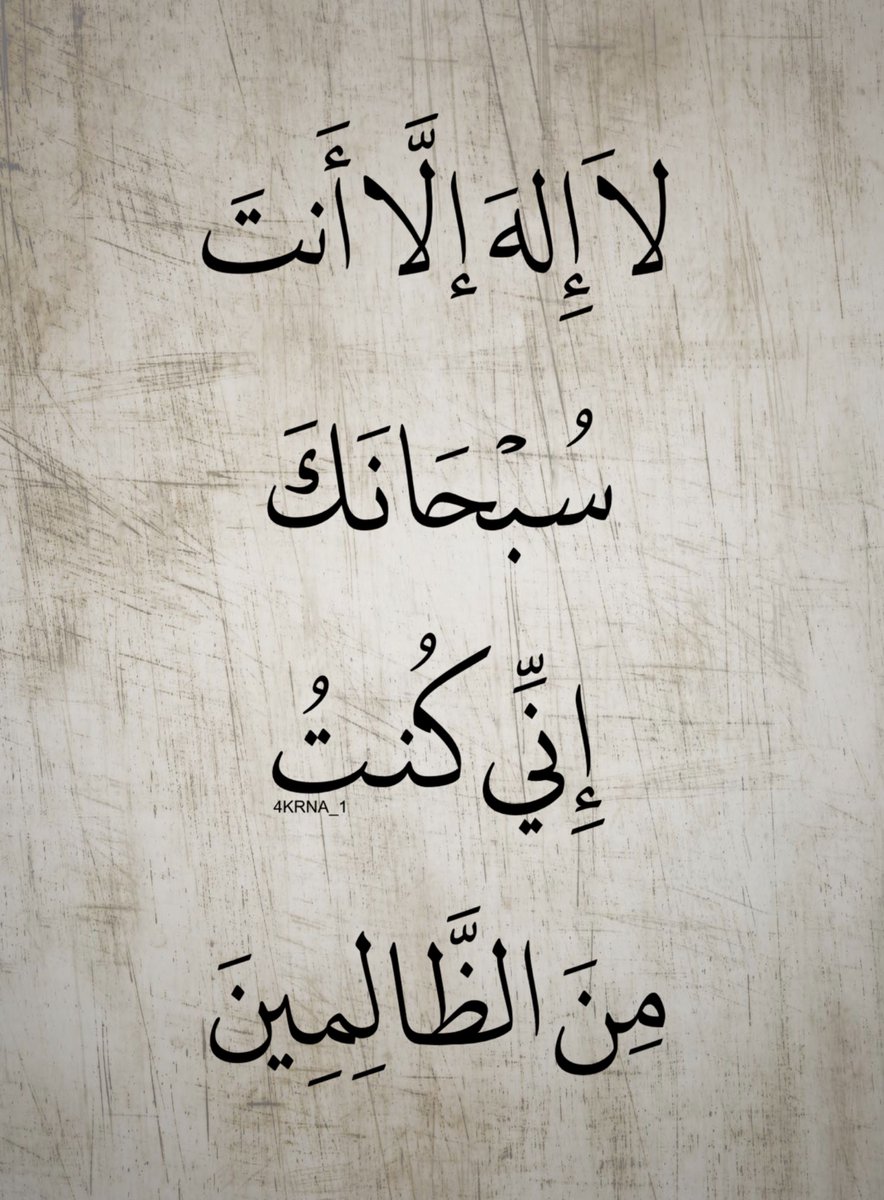 لاَ إِلهَ إلَّا أَنتَ
سُبْحَانَكَ
إِنِّي كُنتُ
4KRNA_1
مِنَ الظَّالِمِينَ